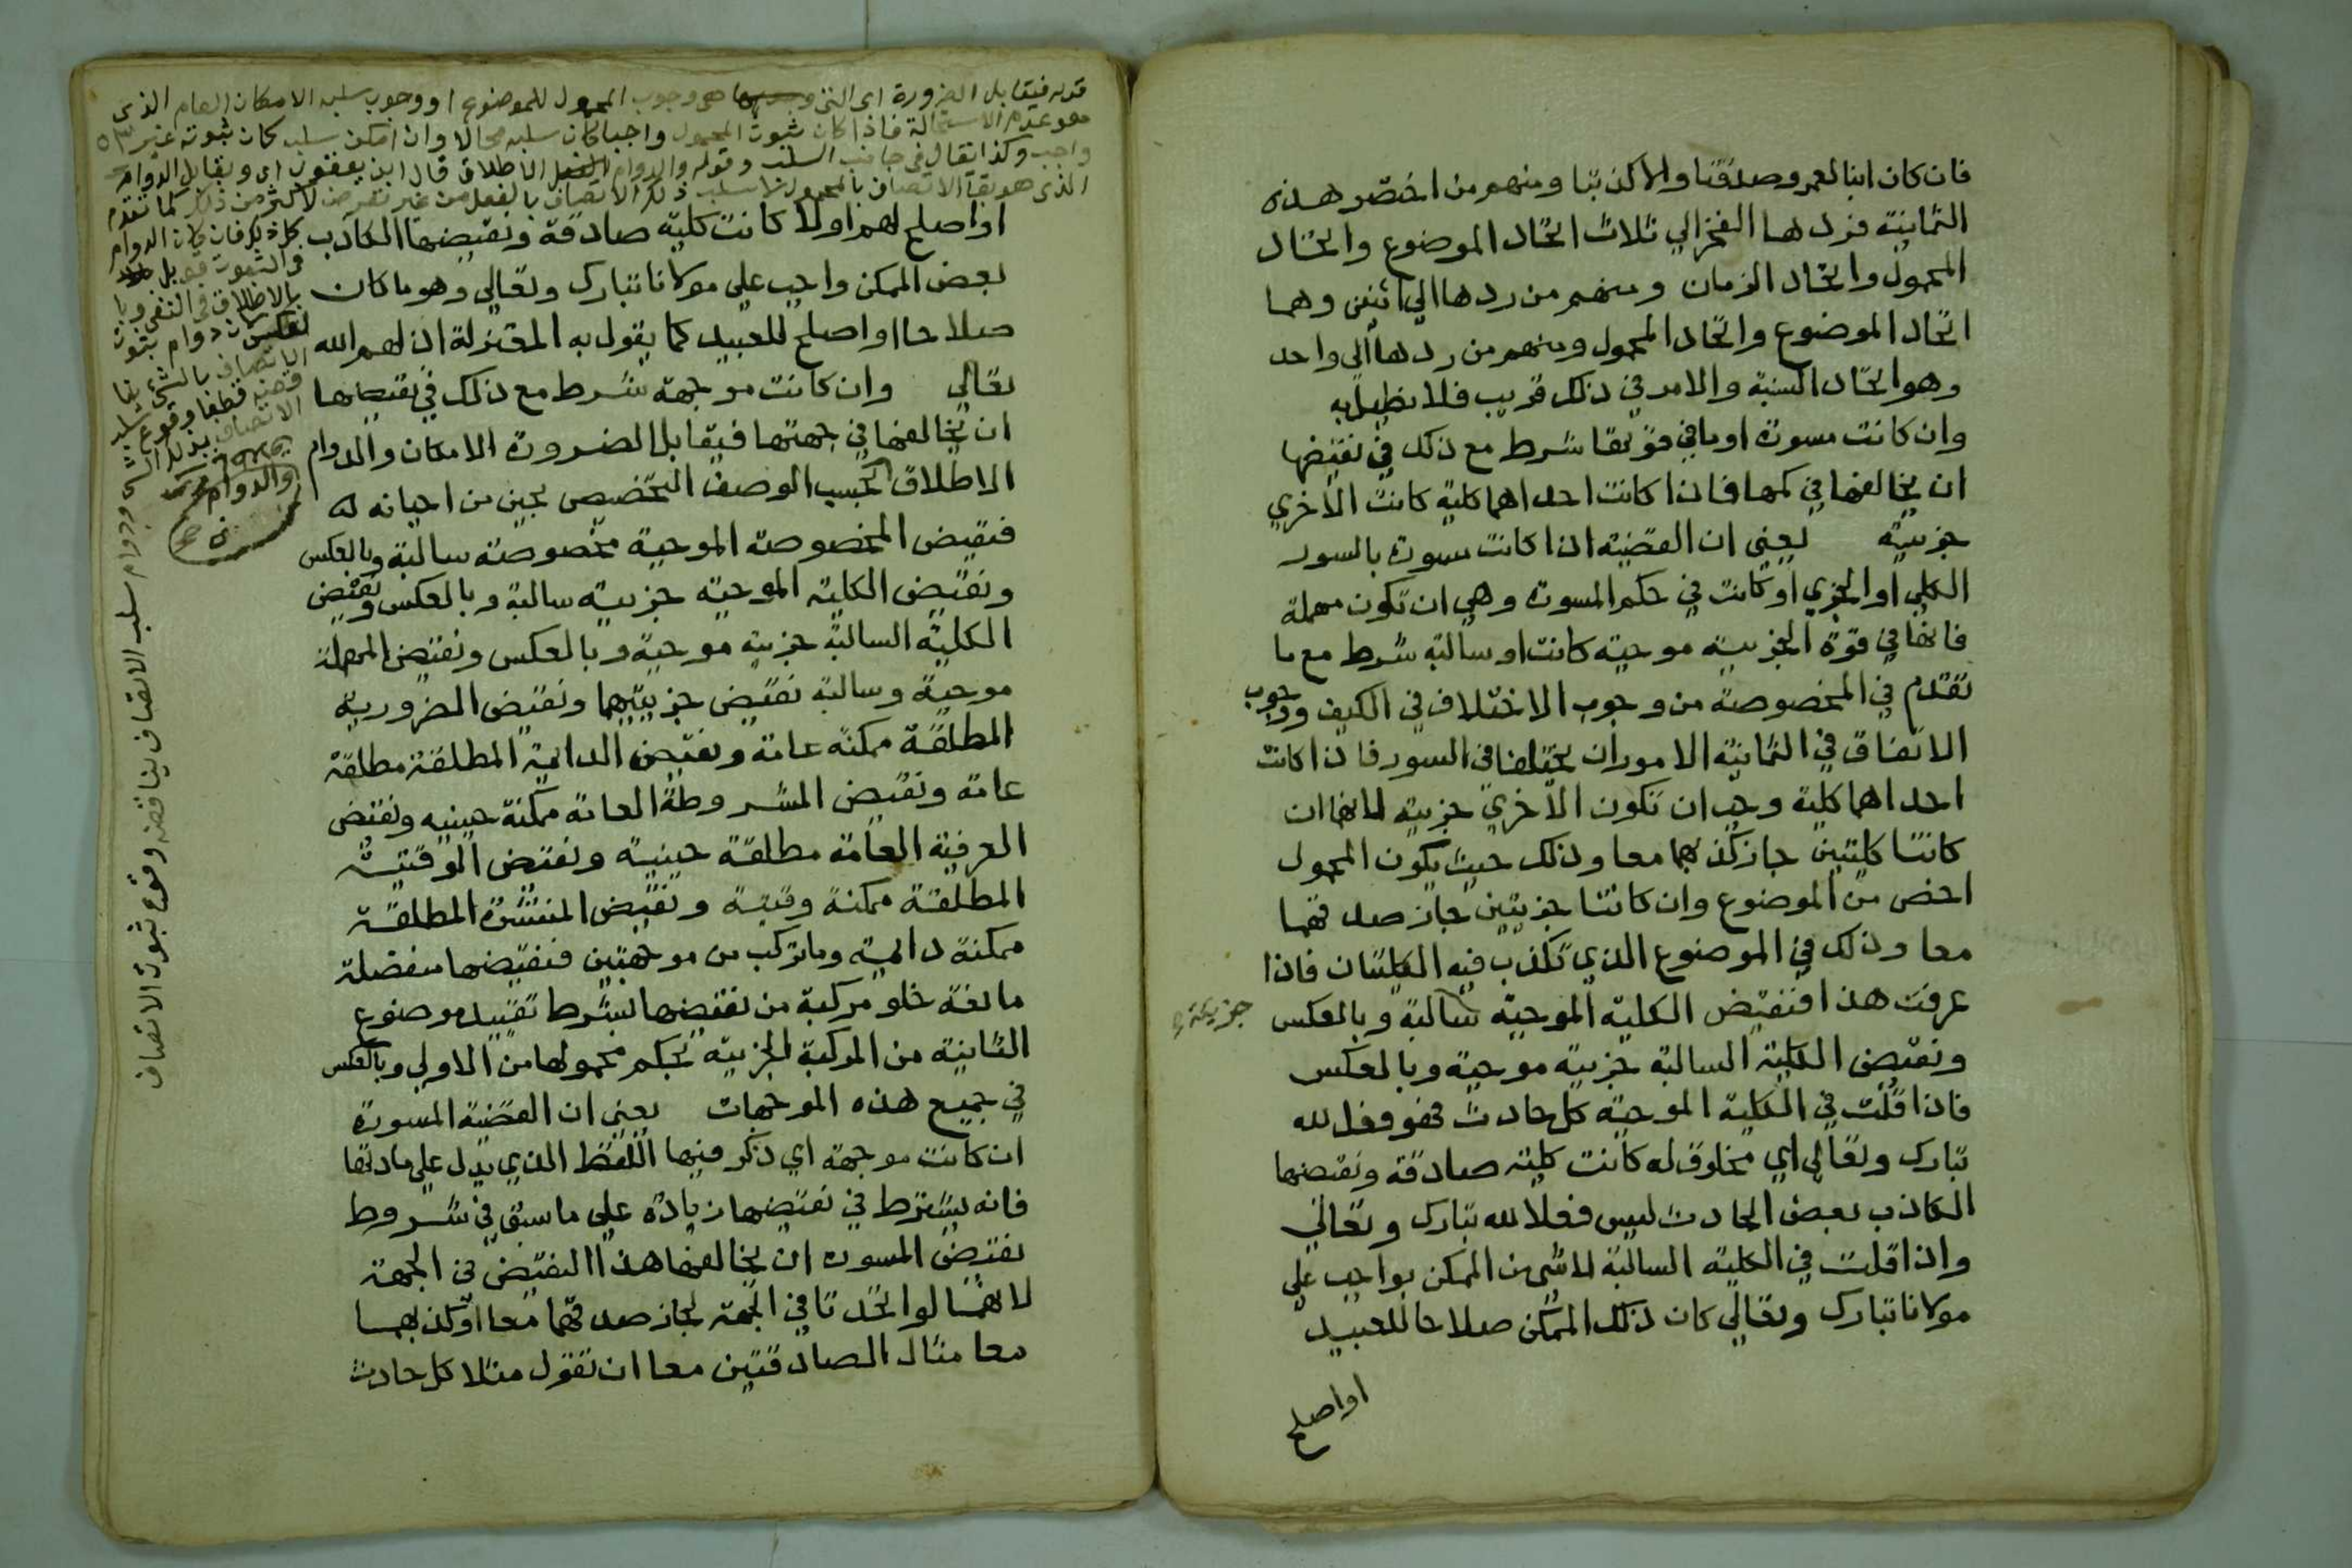 فان كان ابنا لعمرو صدقتا والا كذبتا ومنهم من اختصر هذه
الثمانية فردها الفخر الي ثلاث اتحاد الموضوع واتحاد
المحمول واتحاد الزمان ومنهم من ردها الي اثنين وهما
اتحاد الموضوع واتحاد المحمول ومنهم من ردها الي واحد
وهو اتحاد النسبة والامر في ذلك قريب فلا نطيل به
وان كانت مسورة او ما في قوتها شرط مع ذلك في نقيضها
ان يخالفها في كمها فاذا كانت احداهما كلية كانت الاخري
جزيية يعني ان القضية اذا كانت مسورة بالسور
الكلي او الجزي او كانت في حكم المسورة وهي ان تكون مهملة
فانها في قوة الجزيية موجبة كانت او سالبة شرط مع ما
تقدم في المخصوصة من وجوب الاختلاف في الكيف ووجوب
الاتفاق في الثمانية الامور ان يختلفا في السور فاذا كانت
احداهما كلية وجب ان تكون الاخري جزيية لانهما ان
كانتا كليتين جاز كذبهما معا وذلك حيث يكون المحمول
اخص من الموضوع وان كانتا جزيتين جاز صدقهما
معا وذلك في الموضوع الذي تكذب فيه الكليتان فاذا
عرفت هذا فنقيض الكلية الموجبة سالبة وبالعكس
جزيية
ونقيض الكلية السالبة جزيية موجبة وبالعكس
فاذا قلت في الكلية الموجبة كل حادث فهو فعل لله
تبارك وتعالي اي مخلوق له كانت كلية صادقة ونقيضها
الكاذب بعض الحادث ليس فعلا لله تبارك وتعالي
واذا قلت في الكلية السالبة لا شي من الممكن بواجب علي
مولانا تبارك وتعالي كان ذلك الممكن صلاحا للعبيد
او اصلح
قوله فيقابل الضرورة اي التي هي وجوب المحمول للموضوع او وجوب سلبه الامكان العام الذي
هو عدم الاستحالة فاذا كان ثبوت المحمول واجبا كان سلبه محالا وان امكن سلبه كان ثبوته غير
واجب وكذا يقال في جانب السلب وقوله والدوام الاطلاق قال ابن يعقوب اي ويقابل الدوام
الذي هو بقا الاتصاف بالمحمول او سلب ذلك الاتصاف بالفعل من غير تعرض لاكثر من ذلك كما تقدم
او اصلح لهم او لا كانت كلية صادقة ونقيضها الكاذب
بعض الممكن واجب علي مولانا تبارك وتعالي وهو ما كان
صلاحا او اصلح للعبيد كما يقول به المعتزلة اذلهم الله
تعالي وان كانت موجهة شرط مع ذلك في نقيضها
ان يخالفها في جهتها فيقابل الضرورة الامكان والدوام
الاطلاق بحسب الوصف التخصيص بحين من احيانه له
فنقيض المخصوصة الموجبة مخصوصة سالبة وبالعكس
ونقيض الكلية الموجبة جزيية سالبة وبالعكس ونقيض
الكلية السالبة جزيية موجبة وبالعكس ونقيض المهملة
موجبة وسالبة نقيض جزييتهما ونقيض الضرورية
المطلقة ممكنة عامة ونقيض الدايمة المطلقة مطلقة
عامة ونقيض المشروطة العامة ممكنة حينيه ونقيض
العرفية العامة مطلقة حينية ونقيض الوقتية
المطلقة ممكنة وقتية ونقيض المنتشرة المطلقة
ممكنة دايمة وما تركب من موجهتين فنقيضها منفصلة
مانعة خلو مركبة من نقيضها بشرط تقييد موضوع
الثانية من المركبة الجزيية بحكم محمولها من الاولي وبالعكس
في جميع هذه الموجهات يعني ان القضية المسورة
ان كانت موجهة اي ذكر فيها اللفظ الذي يدل علي مادتها
فانه يشترط في نقيضها زيادة علي ما سبق في شروط
نقيض المسورة ان يخالفها هذا النقيض في الجهة
لانهما لو اتحدتا في الجهة لجاز صدقهما معا او كذبهما
معا مثال الصادقتين معا ان تقول مثلا كل حادث
سلب الاتصاف يناقضه وقوع ثبوت الاتصاف